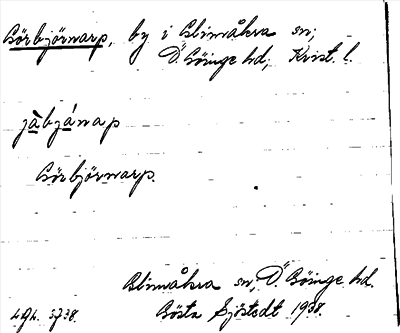 Görbjörnarp, by i Glimåkra sn,
Ö. Göinge hd, Krist. l.
Görbjörnarp.
Glimåkra sn, Ö. Göinge hd.
Gösta Sjöstedt 1938.